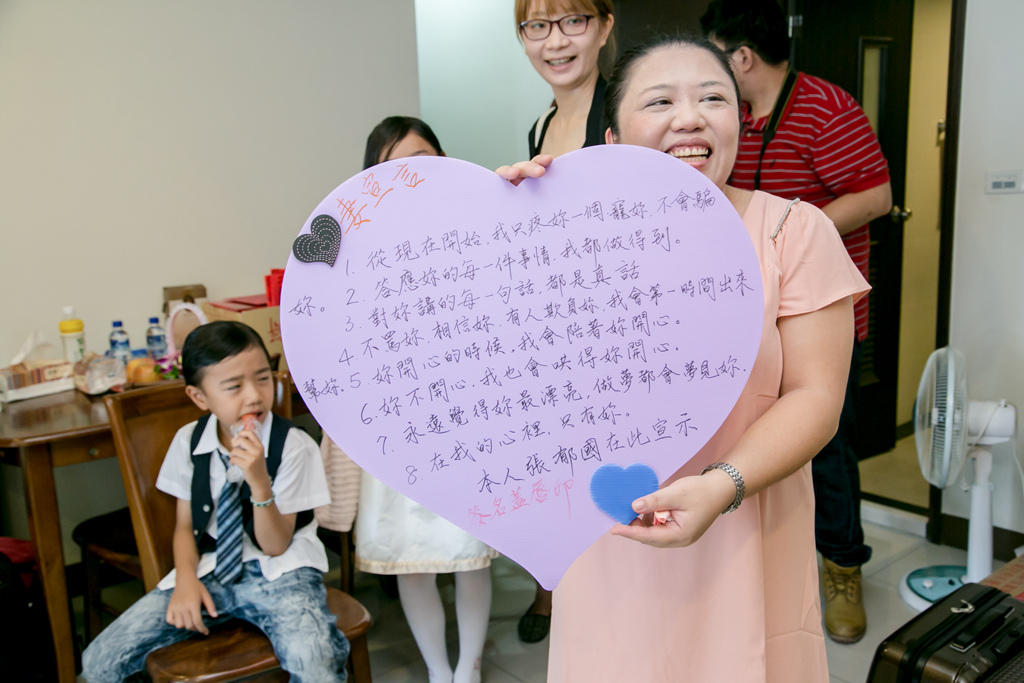 妻宣言
1. 從現在開始,我只疼妳一個,寵妳,不會騙
妳。
2. 答應妳的每一件事情,我都做得到。
3. 對妳講的每一句話,都是真話
4. 不罵妳,相信妳,有人欺負妳,我會第一時間出來
幫妳.
5. 妳開心的時候,我會陪著妳開心。
6. 妳不開心,我也會哄得妳開心。
7. 永遠覺得妳最漂亮,做夢都會夢見妳.
8. 在我的心裡,只有妳。
本人張郁國在此宣示
簽名蓋唇印